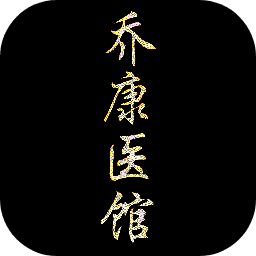 乔康医馆